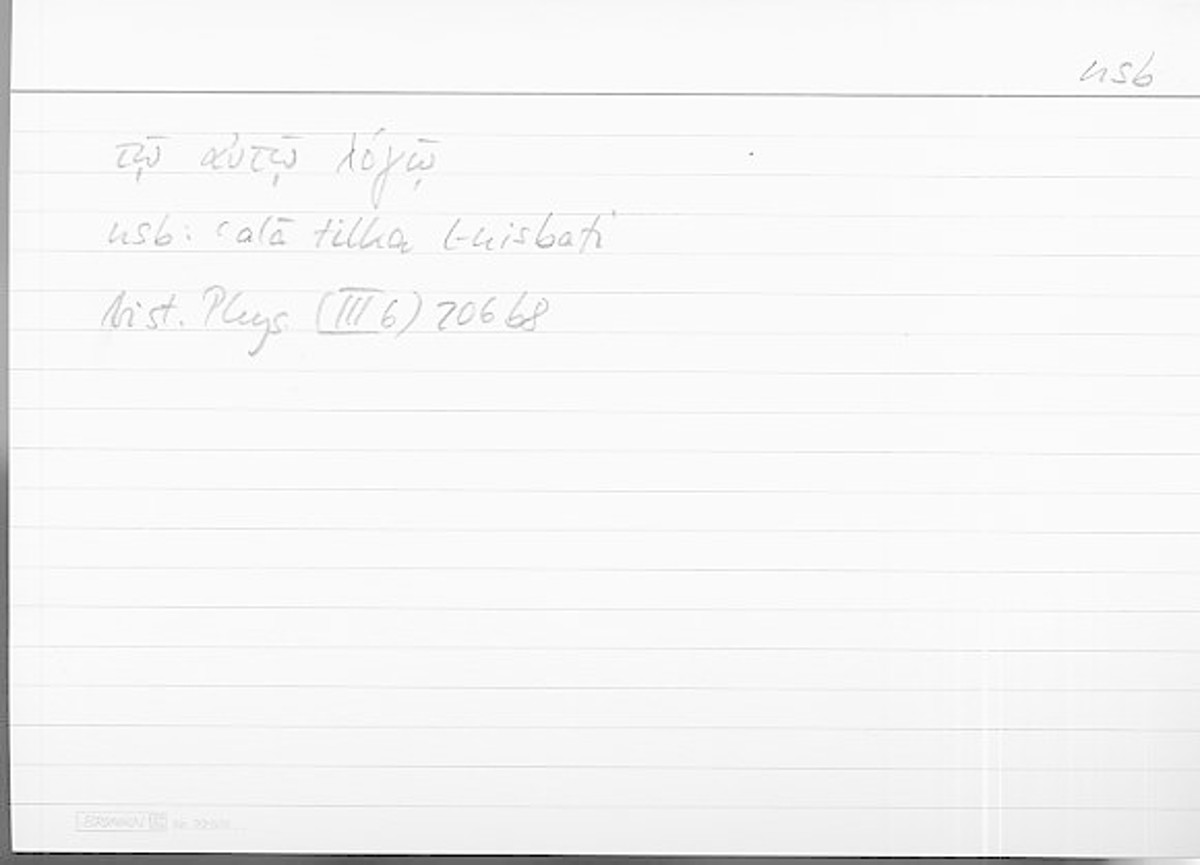 nsb
τῷ αὐτῷ λόγῳ
nsb: ʿalā tilka l-nisbati
Arist. Phys. (III 6) 206 b8